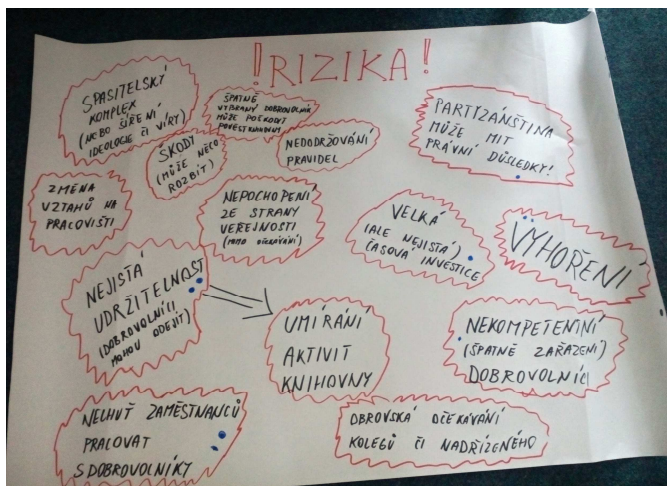 ! RIZIKA !
SPASITELSKÝ
KOMPLEX
(NEBO ŠÍŘENÍ
IDEOLOGIE ČI VÍRY)
ŠPATNĚ
VYBRANÝ DOBROVOLNÍK
MŮŽE POŠKODIT
POVĚST KNIHOVNY
PARTIZÁNŠTINA
MŮŽE MÍT
PRÁVNÍ DŮSLEDKY!
ŠKODY
(MŮŽE NĚCO
ROZBÍT)
NEDODRŽOVÁNÍ
PRAVIDEL
ZMĚNA
VZTAHŮ NA
PRACOVIŠTI
NEPOCHOPENÍ
ZE STRANY
VEŘEJNOSTI
(MIMO OČEKÁVÁNÍ)
VELKÁ
(ALE NEJISTÁ)
ČASOVÁ INVESTICE
VYHOŘENÍ
NEJISTÁ
UDRŽITELNOST
(DOBROVOLNÍCI
MOHOU ODEJÍT)
UMÍRÁNÍ
AKTIVIT
KNIHOVNY
NEKOMPETENTNÍ
(ŠPATNĚ ZAŘAZENÍ)
DOBROVOLNÍCI
NECHUŤ ZAMĚSTNANCŮ
PRACOVAT
S DOBROVOLNÍKY
OBROVSKÁ OČEKÁVÁNÍ
KOLEGŮ ČI NADŘÍZENÉHO